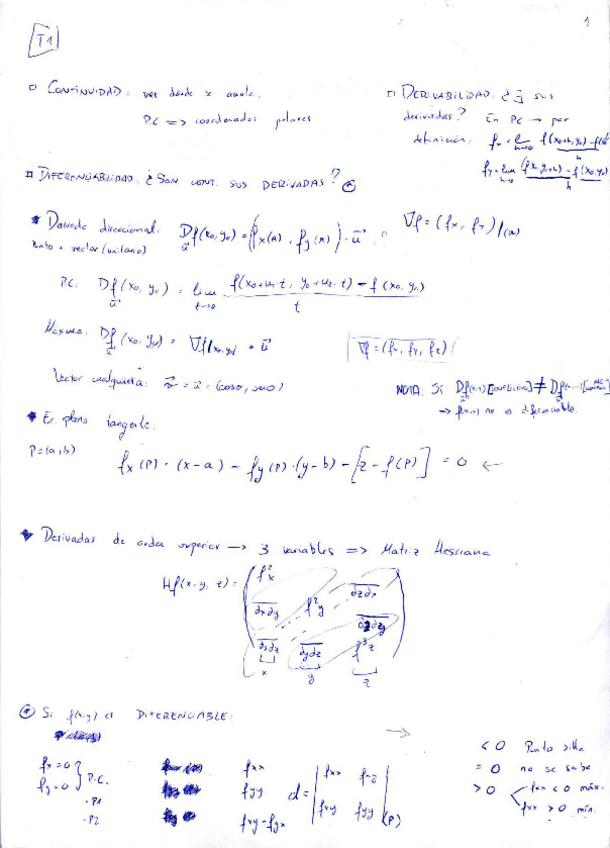 1
T1
□ CONTINUIDAD: ver donde se anula.
P.C => coordenadas polares
□ DERIVABILIDAD: ¿∃ sus
derivadas? En P.C → por
definición: fx = lim h→0 f(x0+h, y0) - f(
fy = lim h→0 f(x0, y0+h) - f(x0, y0) / h
□ DIFERENCIABILIDAD: ¿SON CONT. SUS DERIVADAS? *
* Derivada direccional:
Punto + vector (unitario)
Df(x0, y0) = (fx(a), fy(a)) · u
∇f = (fx, fy)/(a)
P.C: Df(x0, y0) = lim t→0 f(x0+u1·t, y0+u2·t) - f(x0, y0) / t
Máxima: Df(x0, y0) = ∇f(x0, y0) · u
∇f = (fx, fy, fz)
Vector cualquiera: v = u = (cosα, senα)
→ f(x,y) no es diferenciable.
* Ec. plano tangente:
P=(a,b)
fx(P) · (x-a) - fy(P) · (y-b) - [z - f(P)] = 0 ←
* Derivadas de orden superior → 3 variables => Matriz Hessiana
Hf(x, y, z) = ( f²x ∂z∂x
∂x∂y f²y ∂z∂y
∂x∂z ∂y∂z f²z )
x y z
* Si f(x,y) es DIFERENCIABLE:
fx = 0
fy = 0 } P.C.
· P1
· P2
fxx
fyy
fxy = fyx
d = | fxx fxy
fxy fyy | (P)
< 0 Punto silla
= 0 no se sabe
> 0 fxx < 0 máx.
fxx > 0 mín.